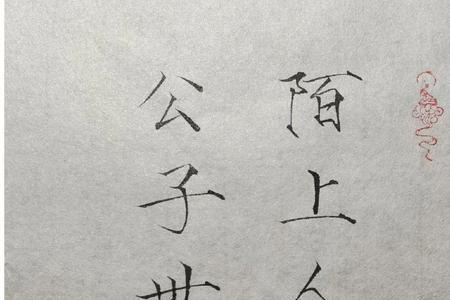 陌上人
公子世